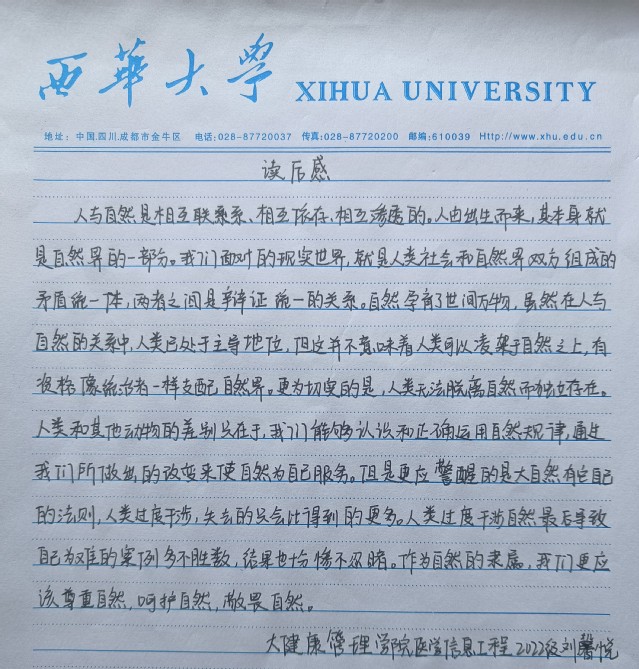 西華大学 XIHUA UNIVERSITY
地址：中国.四川.成都市金牛区 电话:028-87720037 传真:028-87720200 邮编:610039 Http://www.xhu.edu.cn
读后感
人与自然是相互联系、相互依存、相互渗透的。人由出生而来,其本身就
是自然界的一部分。我们面对的现实世界,就是人类社会和自然界双方组成的
矛盾统一体,两者之间是辩证统一的关系。自然孕育了世间万物,虽然在人与
自然的关系中,人类已处于主导地位,但这并不意味着人类可以凌架于自然之上,有
资格像统治者一样支配自然界。更为切实的是,人类无法脱离自然而独立存在。
人类和其他动物的差别只在于,我们能够认识和正确运用自然规律,通过
我们所做出的改变来使自然为自己服务。但是更应警醒的是大自然有它自己
的法则,人类过度干涉,失去的只会比得到的更多。人类过度干涉自然最后导致
自己为难的案例多不胜数,结果也十分惨不忍睹。作为自然的隶属,我们更应
该尊重自然,呵护自然,敬畏自然。
大健康管理学院医学信息工程2022级刘馨悦